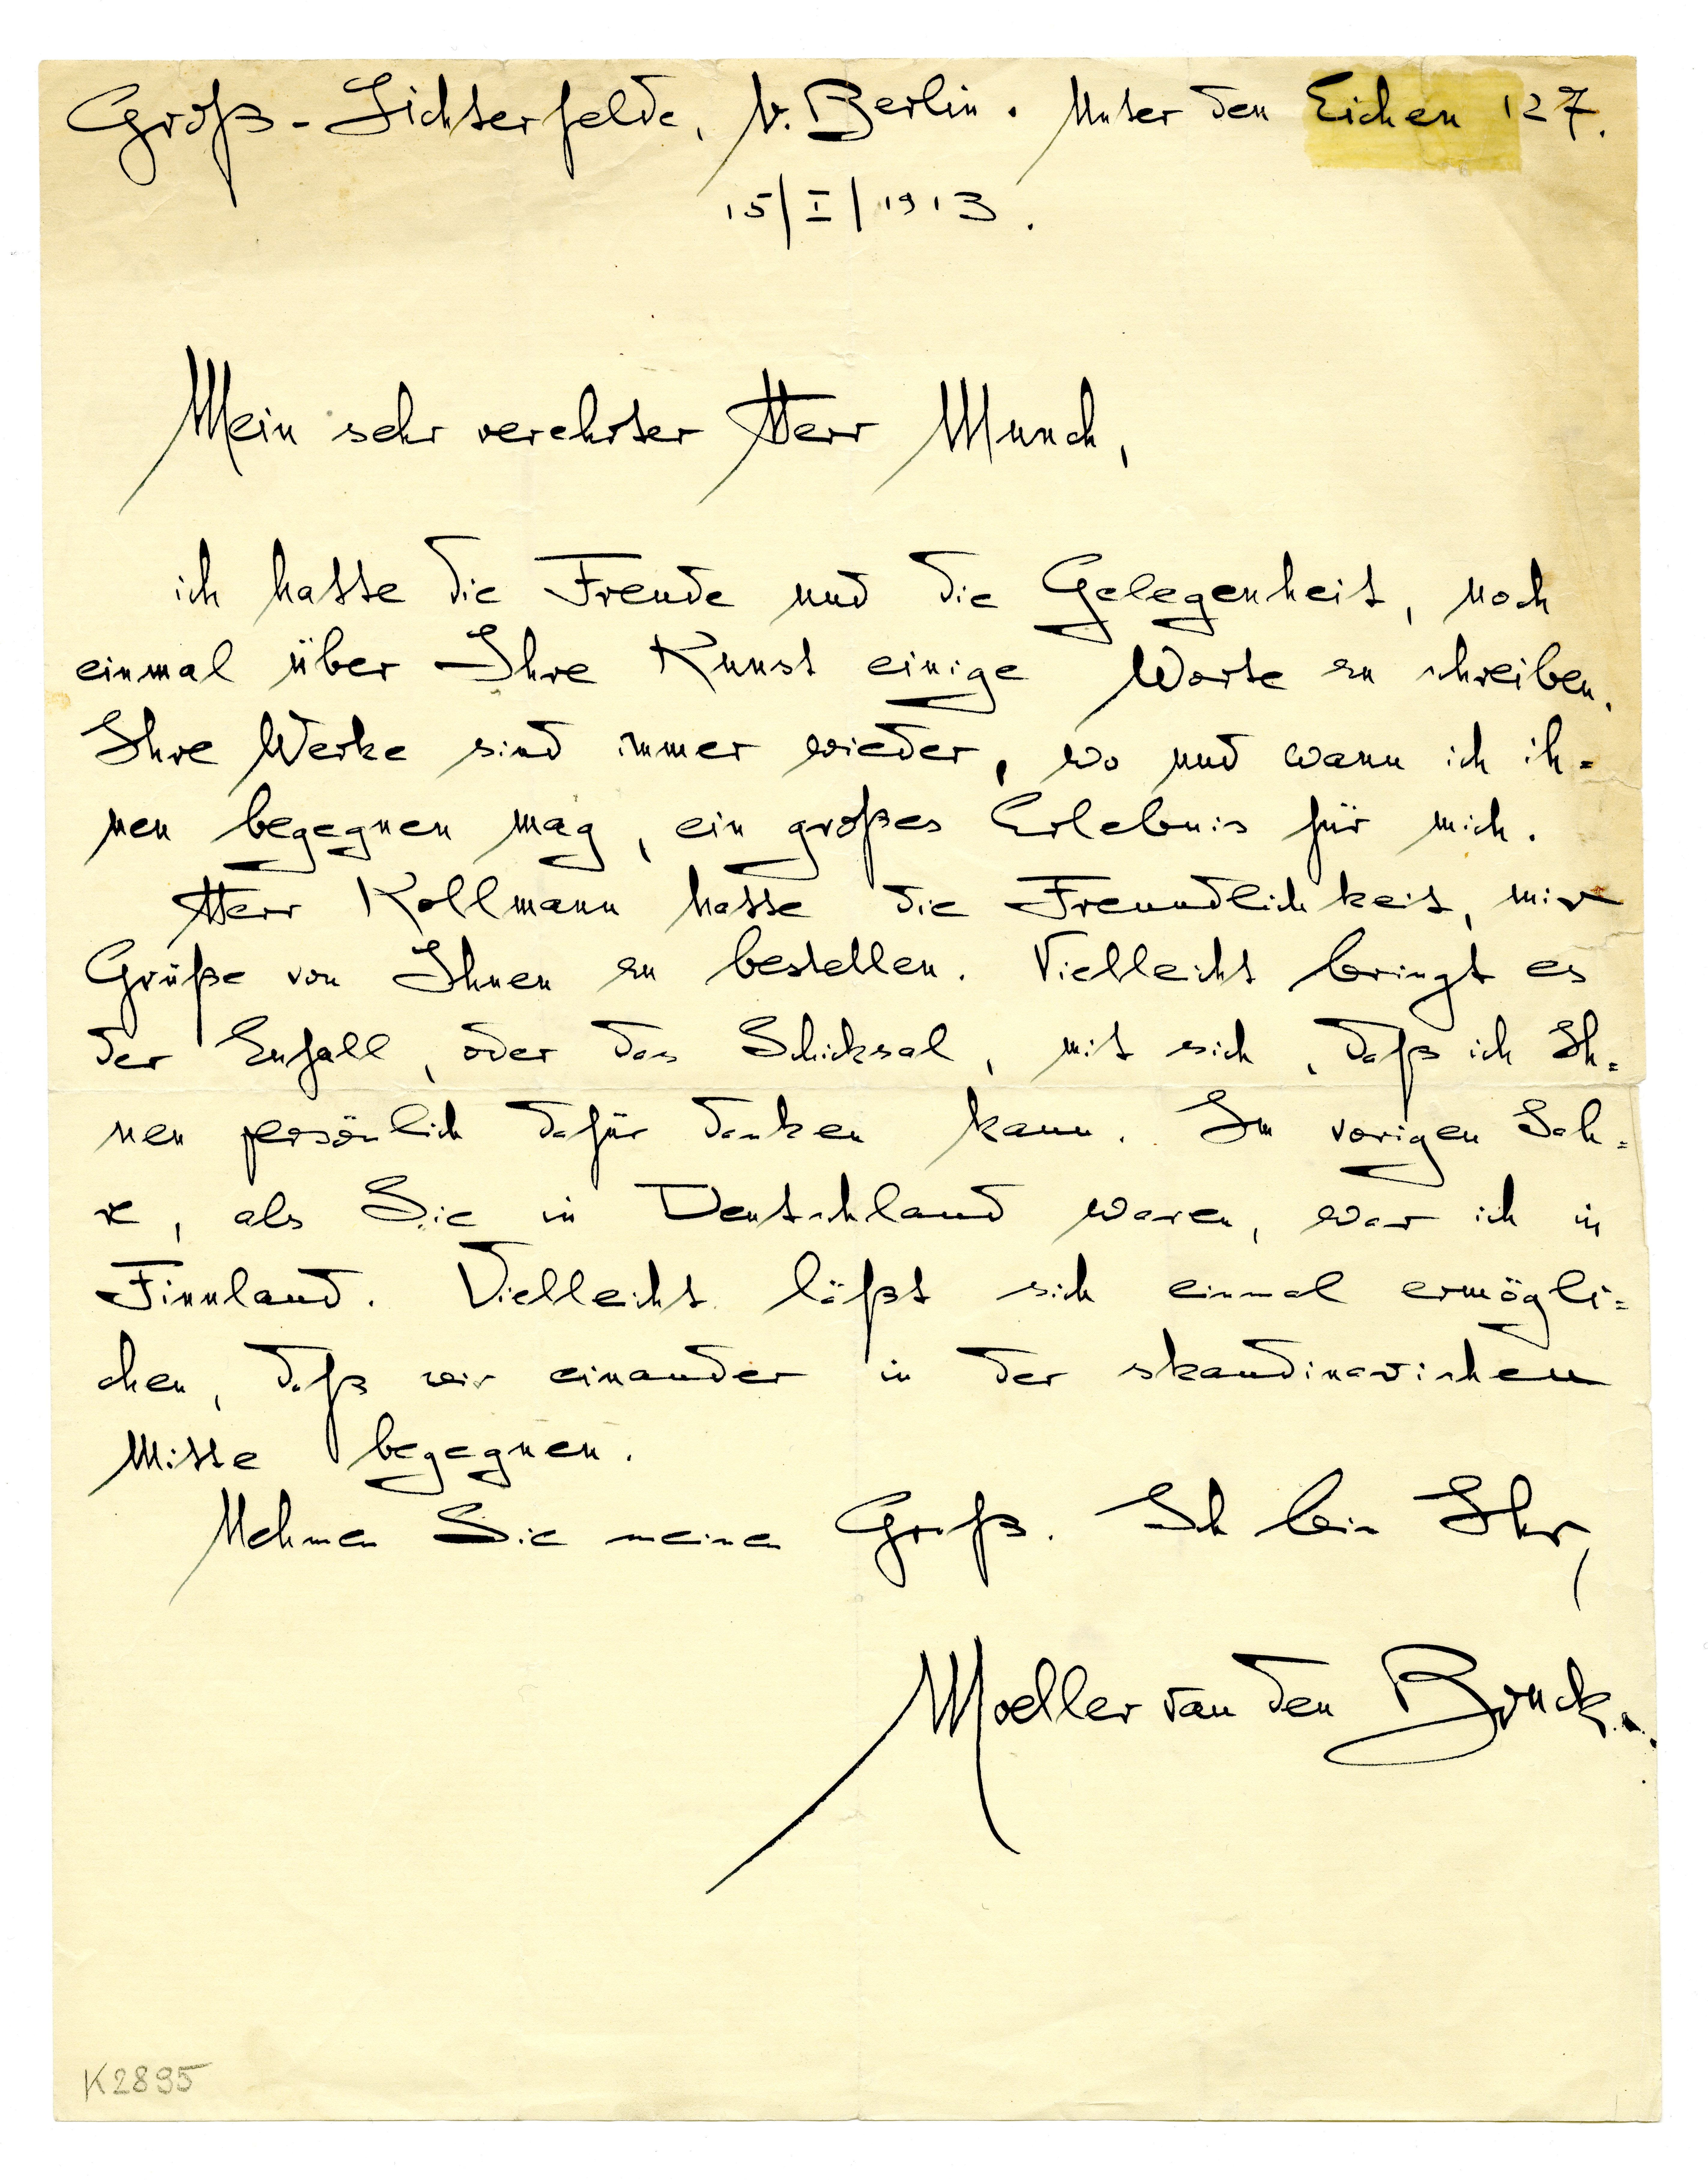 Groß-Lichterfelde, b. Berlin. Unter den Eichen 127.
15/I/1913.
Mein sehr verehrter Herr Munch,
ich hatte die Freude und die Gelegenheit, noch
einmal über Ihre Kunst einige Worte zu schreiben.
Ihre Werke sind immer wieder, wo und wann ich ih=
nen begegnen mag, ein großes Erlebnis für mich.
Herr Kollmann hatte die Freundlichkeit, mir
Grüße von Ihnen zu bestellen. Vielleicht bringt es
der Zufall, oder das Schicksal, mit sich, daß ich Ih=
nen persönlich dafür danken kann. Im vorigen Jah=
re, als Sie in Deutschland waren, war ich in
Finnland. Vielleicht läßt sich einmal ermögli=
chen, daß wir einander in der skandinavischen
Mitte begegnen.
Nehmen Sie meinen Gruß. Ich bin Ihr,
Moeller van den Bruck.
K2895